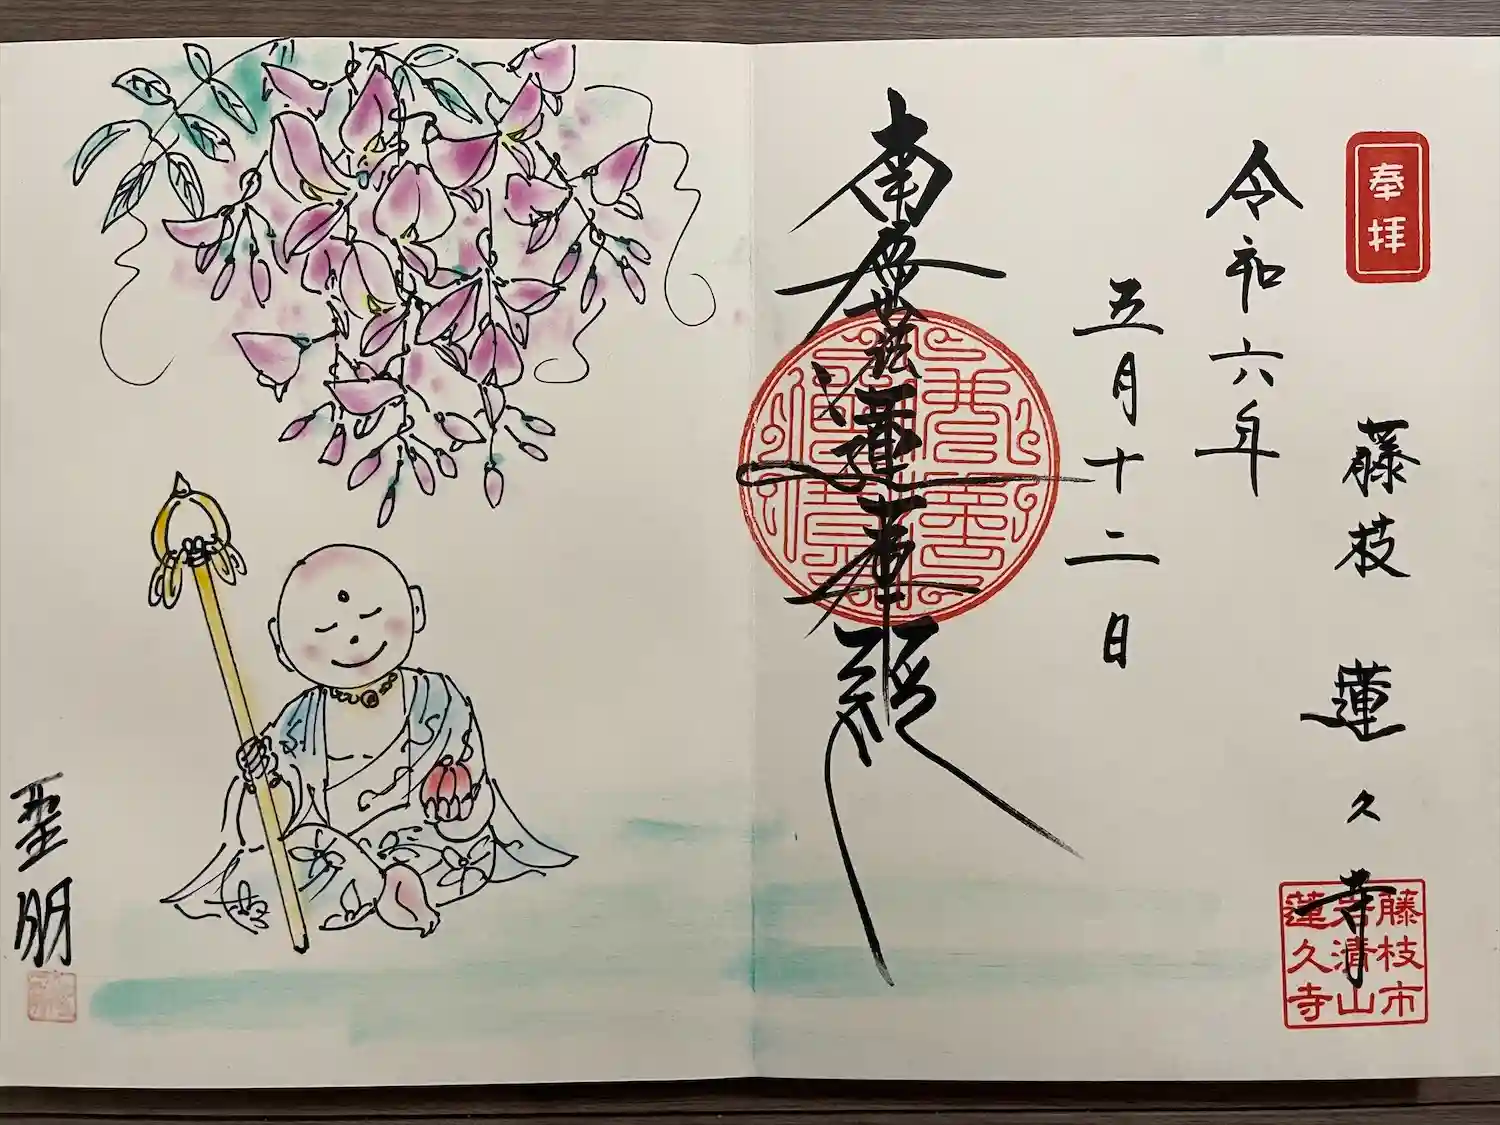 奉拝
藤枝 蓮久寺
藤枝市
清山
蓮久寺
令和六年
五月十二日
南無妙法蓮華経